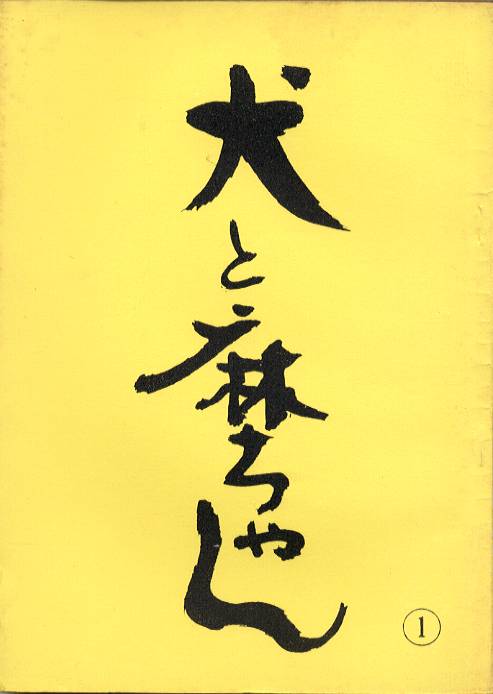 犬と麻ちゃん
1